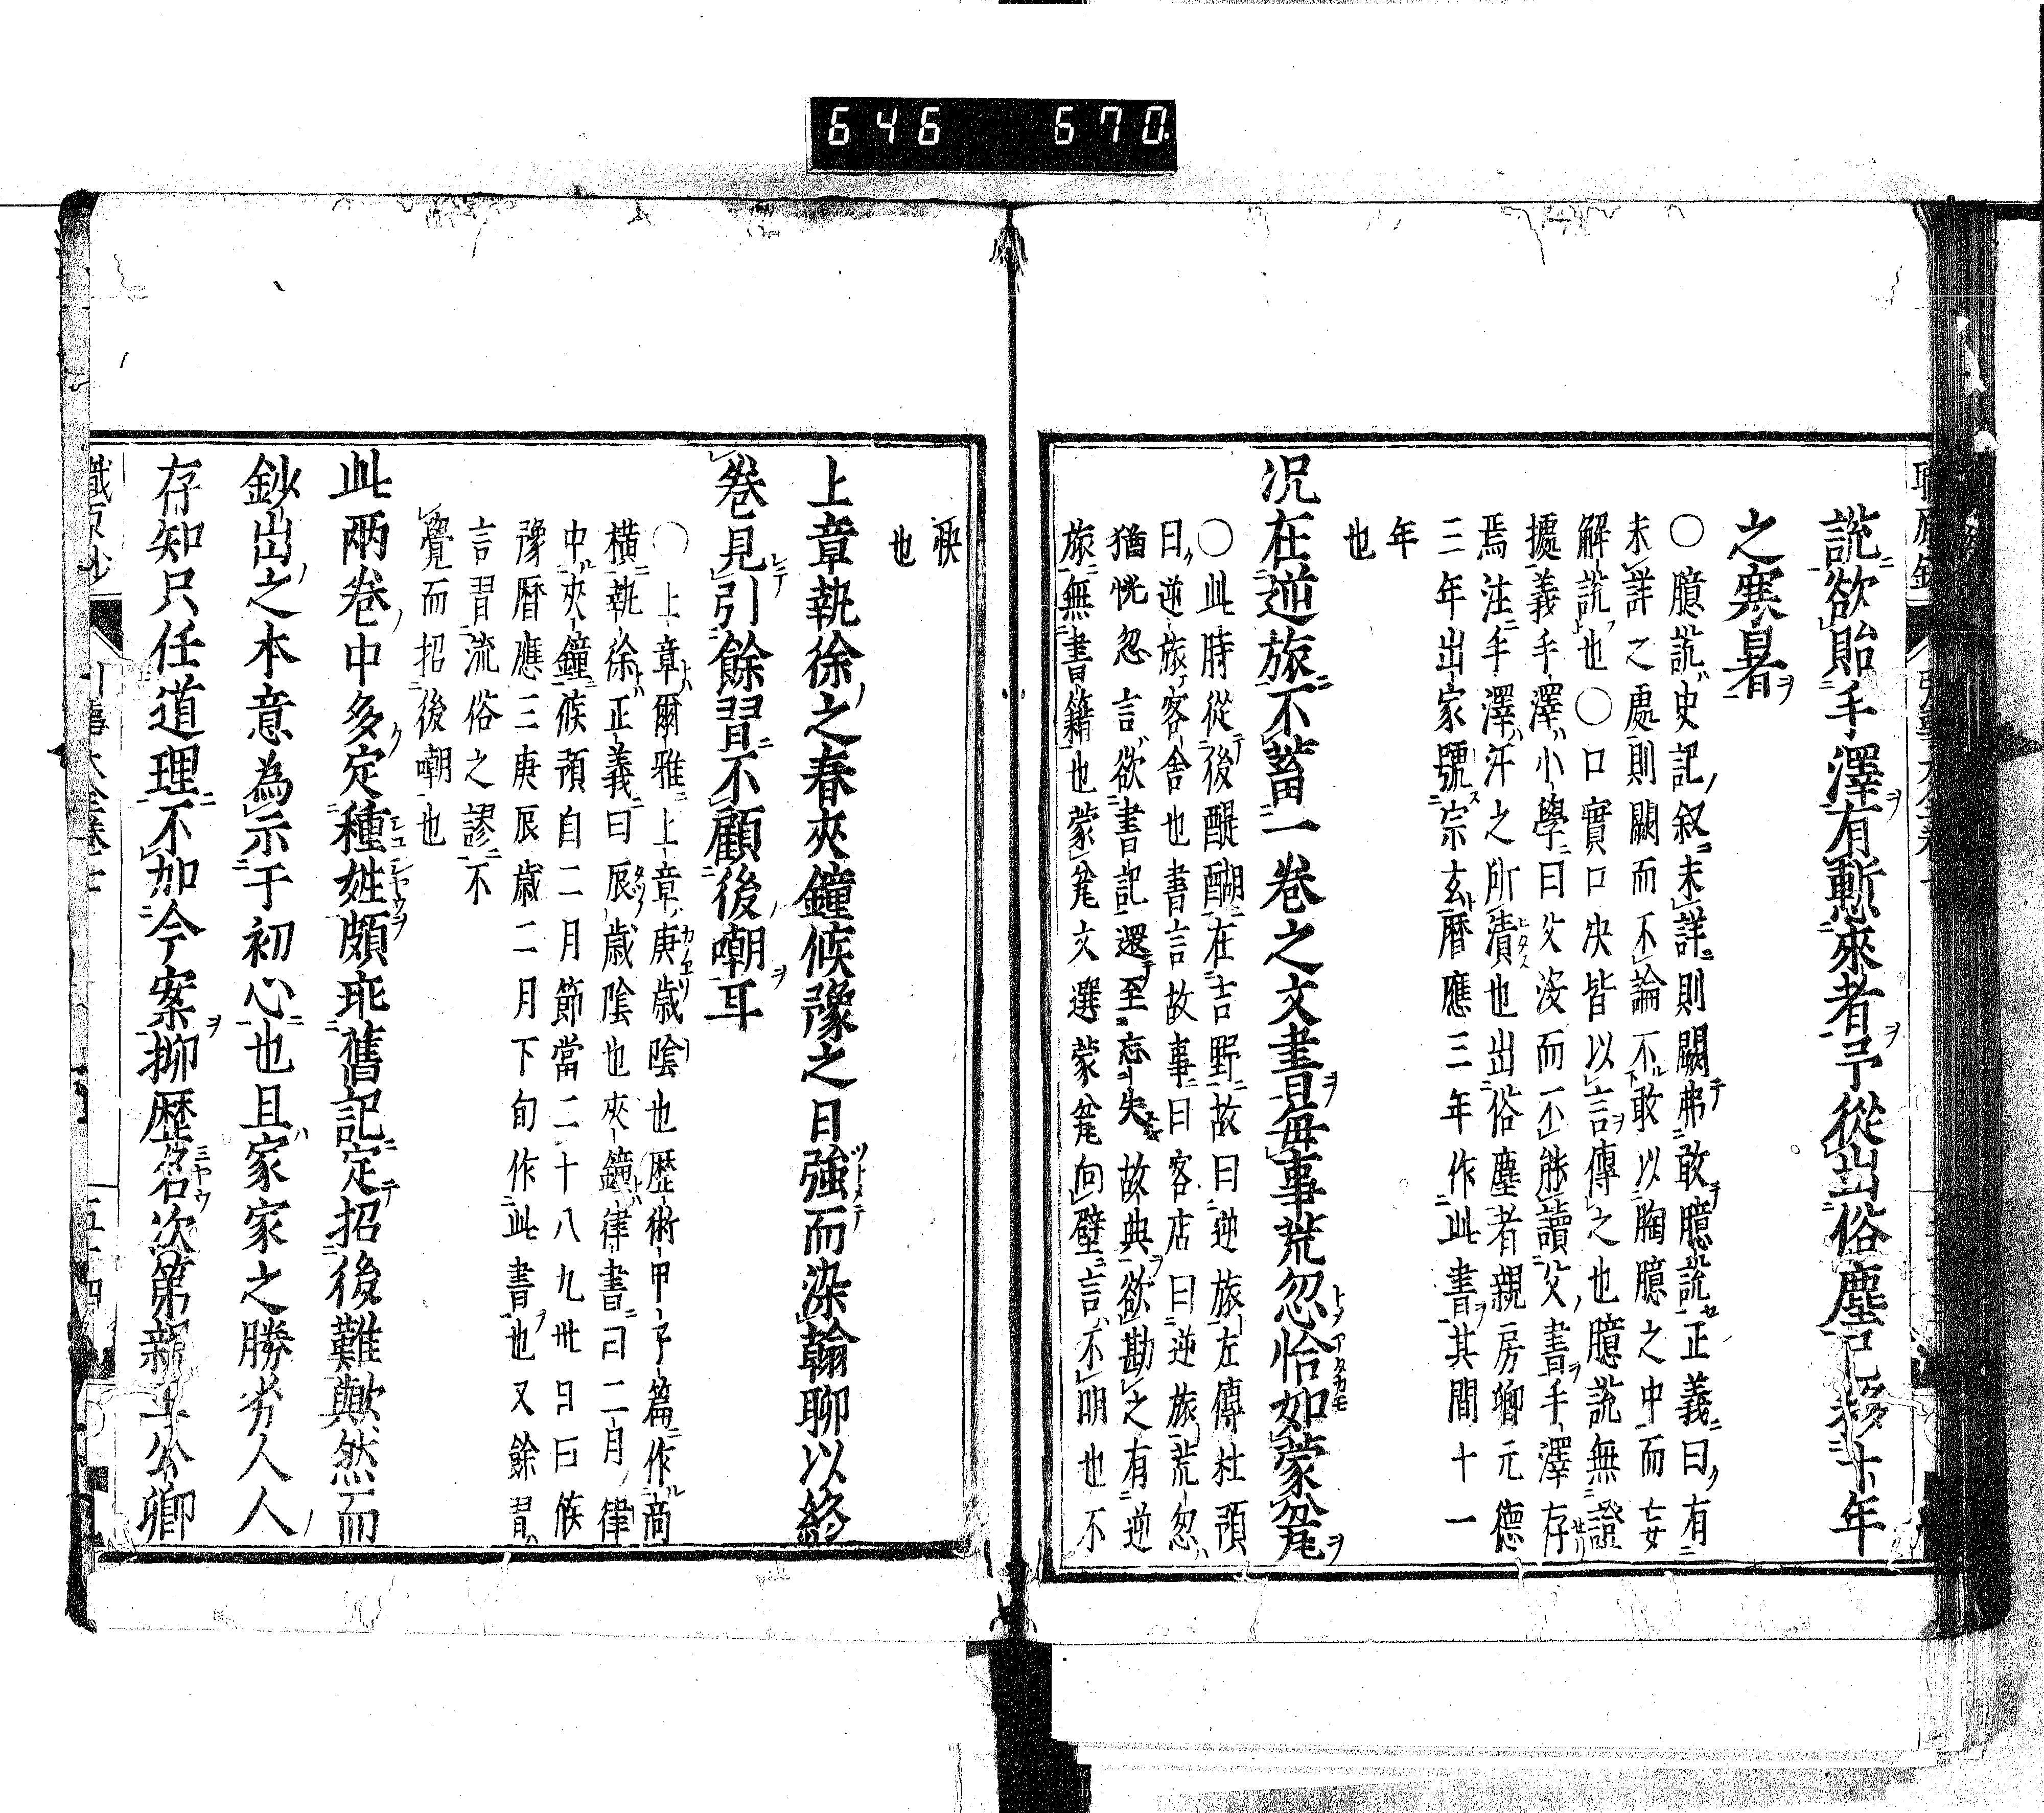 説欲貽手澤有慙來者予從出俗塵已移十年
之寒暑
〇臆説史記叙未詳則闕弗敢臆説正義曰有
未詳之處則闕而不論不敢以胸臆之中而妄
解説也〇口實口決皆以言傳之也臆説無證
據義手澤小學曰父沒而不能讀父書手澤存
焉注手澤汗之所漬也出俗塵者親房卿元德
三年出家號宗玄暦應三年作此書其間十一
年
也
况在逆旅不蓄一巻之文書毎事荒忽恰如蒙瓫
〇此時從後醍醐在吉野故曰逆旅左傳杜預
曰逆旅客舍也書言故事曰客店曰逆旅荒忽
猶恍忽言欲書記還至忘失故典欲勘之有逆
旅無書籍也蒙瓫文選蒙瓫向壁言不明也不
快
也
上章執徐之春夾鐘候豫之日強而染翰聊以終
巻見引餘習不顧後嘲耳
〇上章爾雅上章庚歳陰也歴術甲子篇作商
横執徐正義曰辰歳陰也夾鐘律書曰二月律
中夾鐘候預自二月節當二十八九卅日曰候
豫暦應三庚辰歳二月下旬作此書也又餘習
言習流俗之謬不
覺而招後嘲也
此兩巻中多定種姓頗乖舊記定招後難歟然而
鈔出之本意為示于初心也且家家之勝劣人人
存知只任道理不加今案抑歴名次第親王公卿
職原抄
646 670